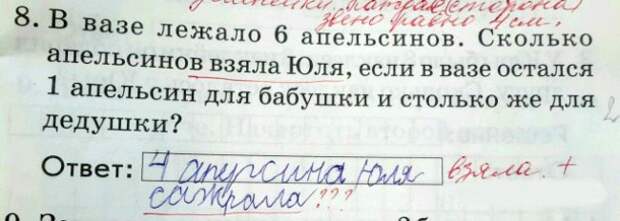 звено равно 4 см.
8. В вазе лежало 6 апельсинов. Сколько
апельсинов взяла Юля, если в вазе остался
1 апельсин для бабушки и столько же для
дедушки?
Ответ: 4 аперсина Юля взяла +
сажрала???